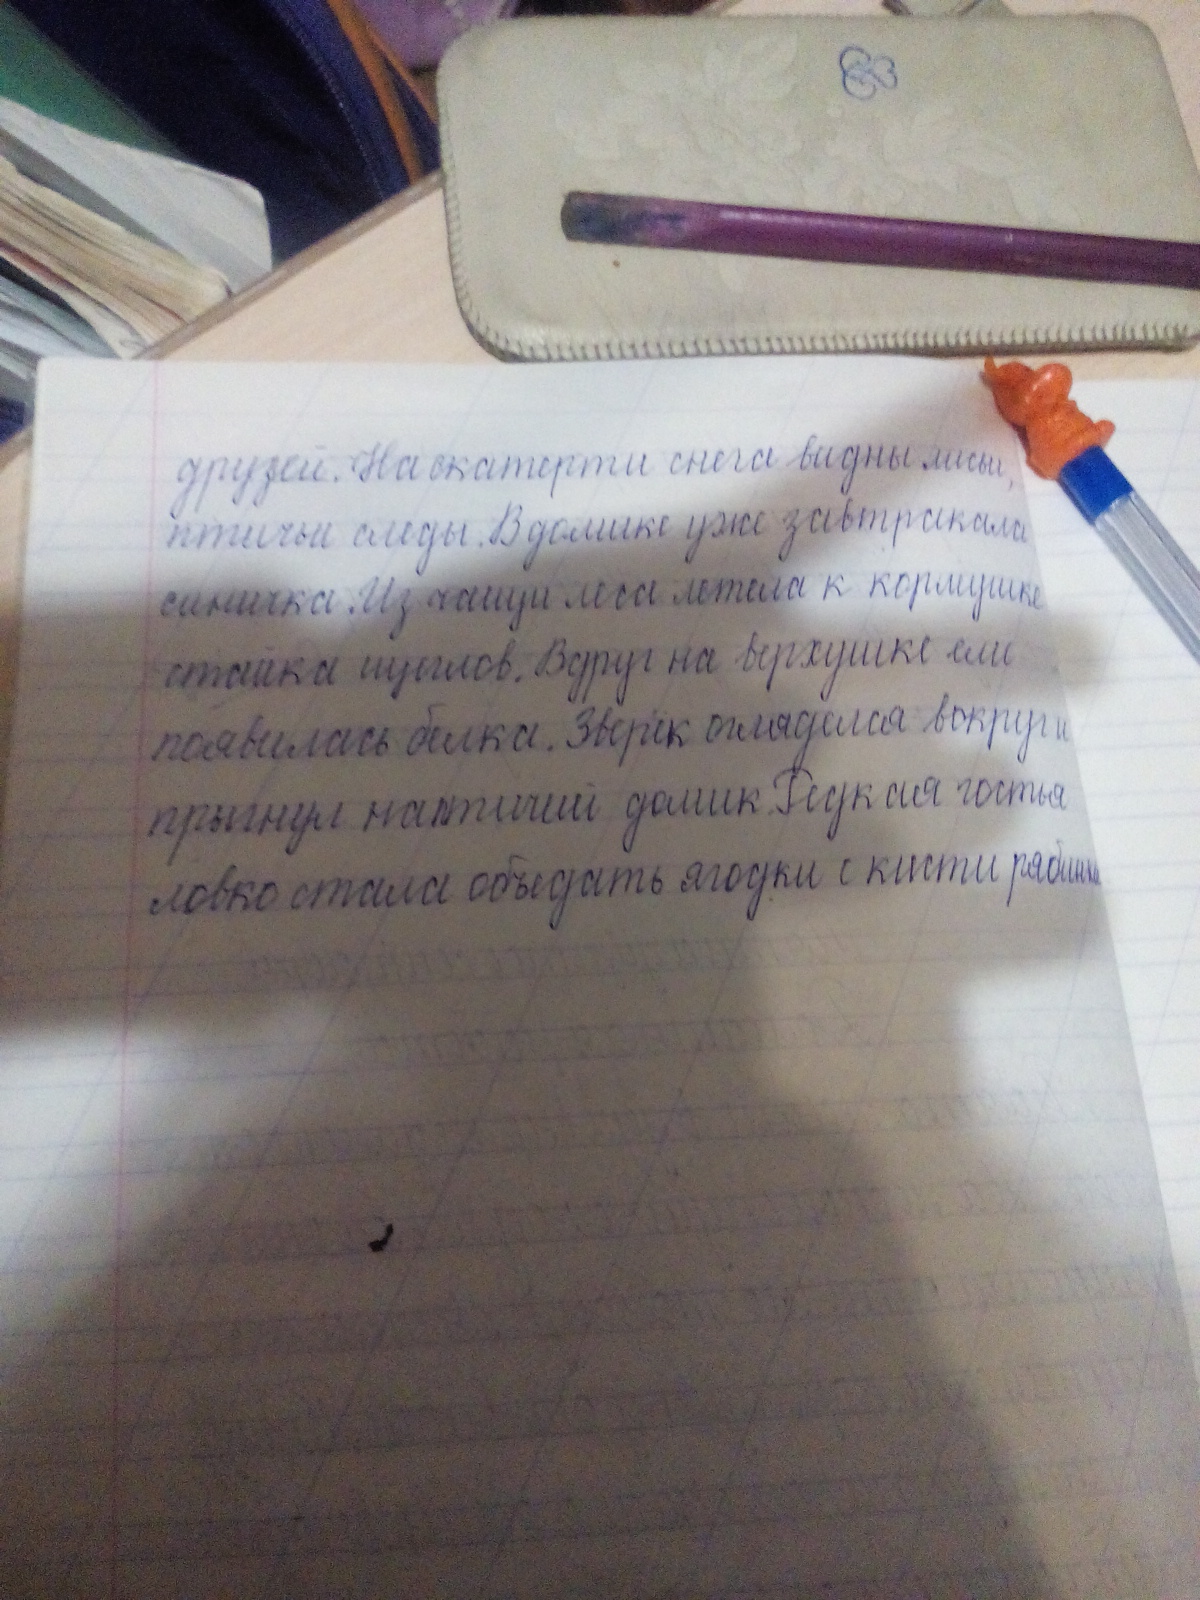 друзей. На скатерти снега видны лисьи,
птичьи следы. В домике уже завтракала
синичка. Из чащи леса летела к кормушке
стайка щеглов. Вдруг на верхушке ели
появилась белка. Зверёк огляделся вокруг и
прыгнул на птичий домик. Редкая гостья
ловко стала объедать ягодки с кисти рябины